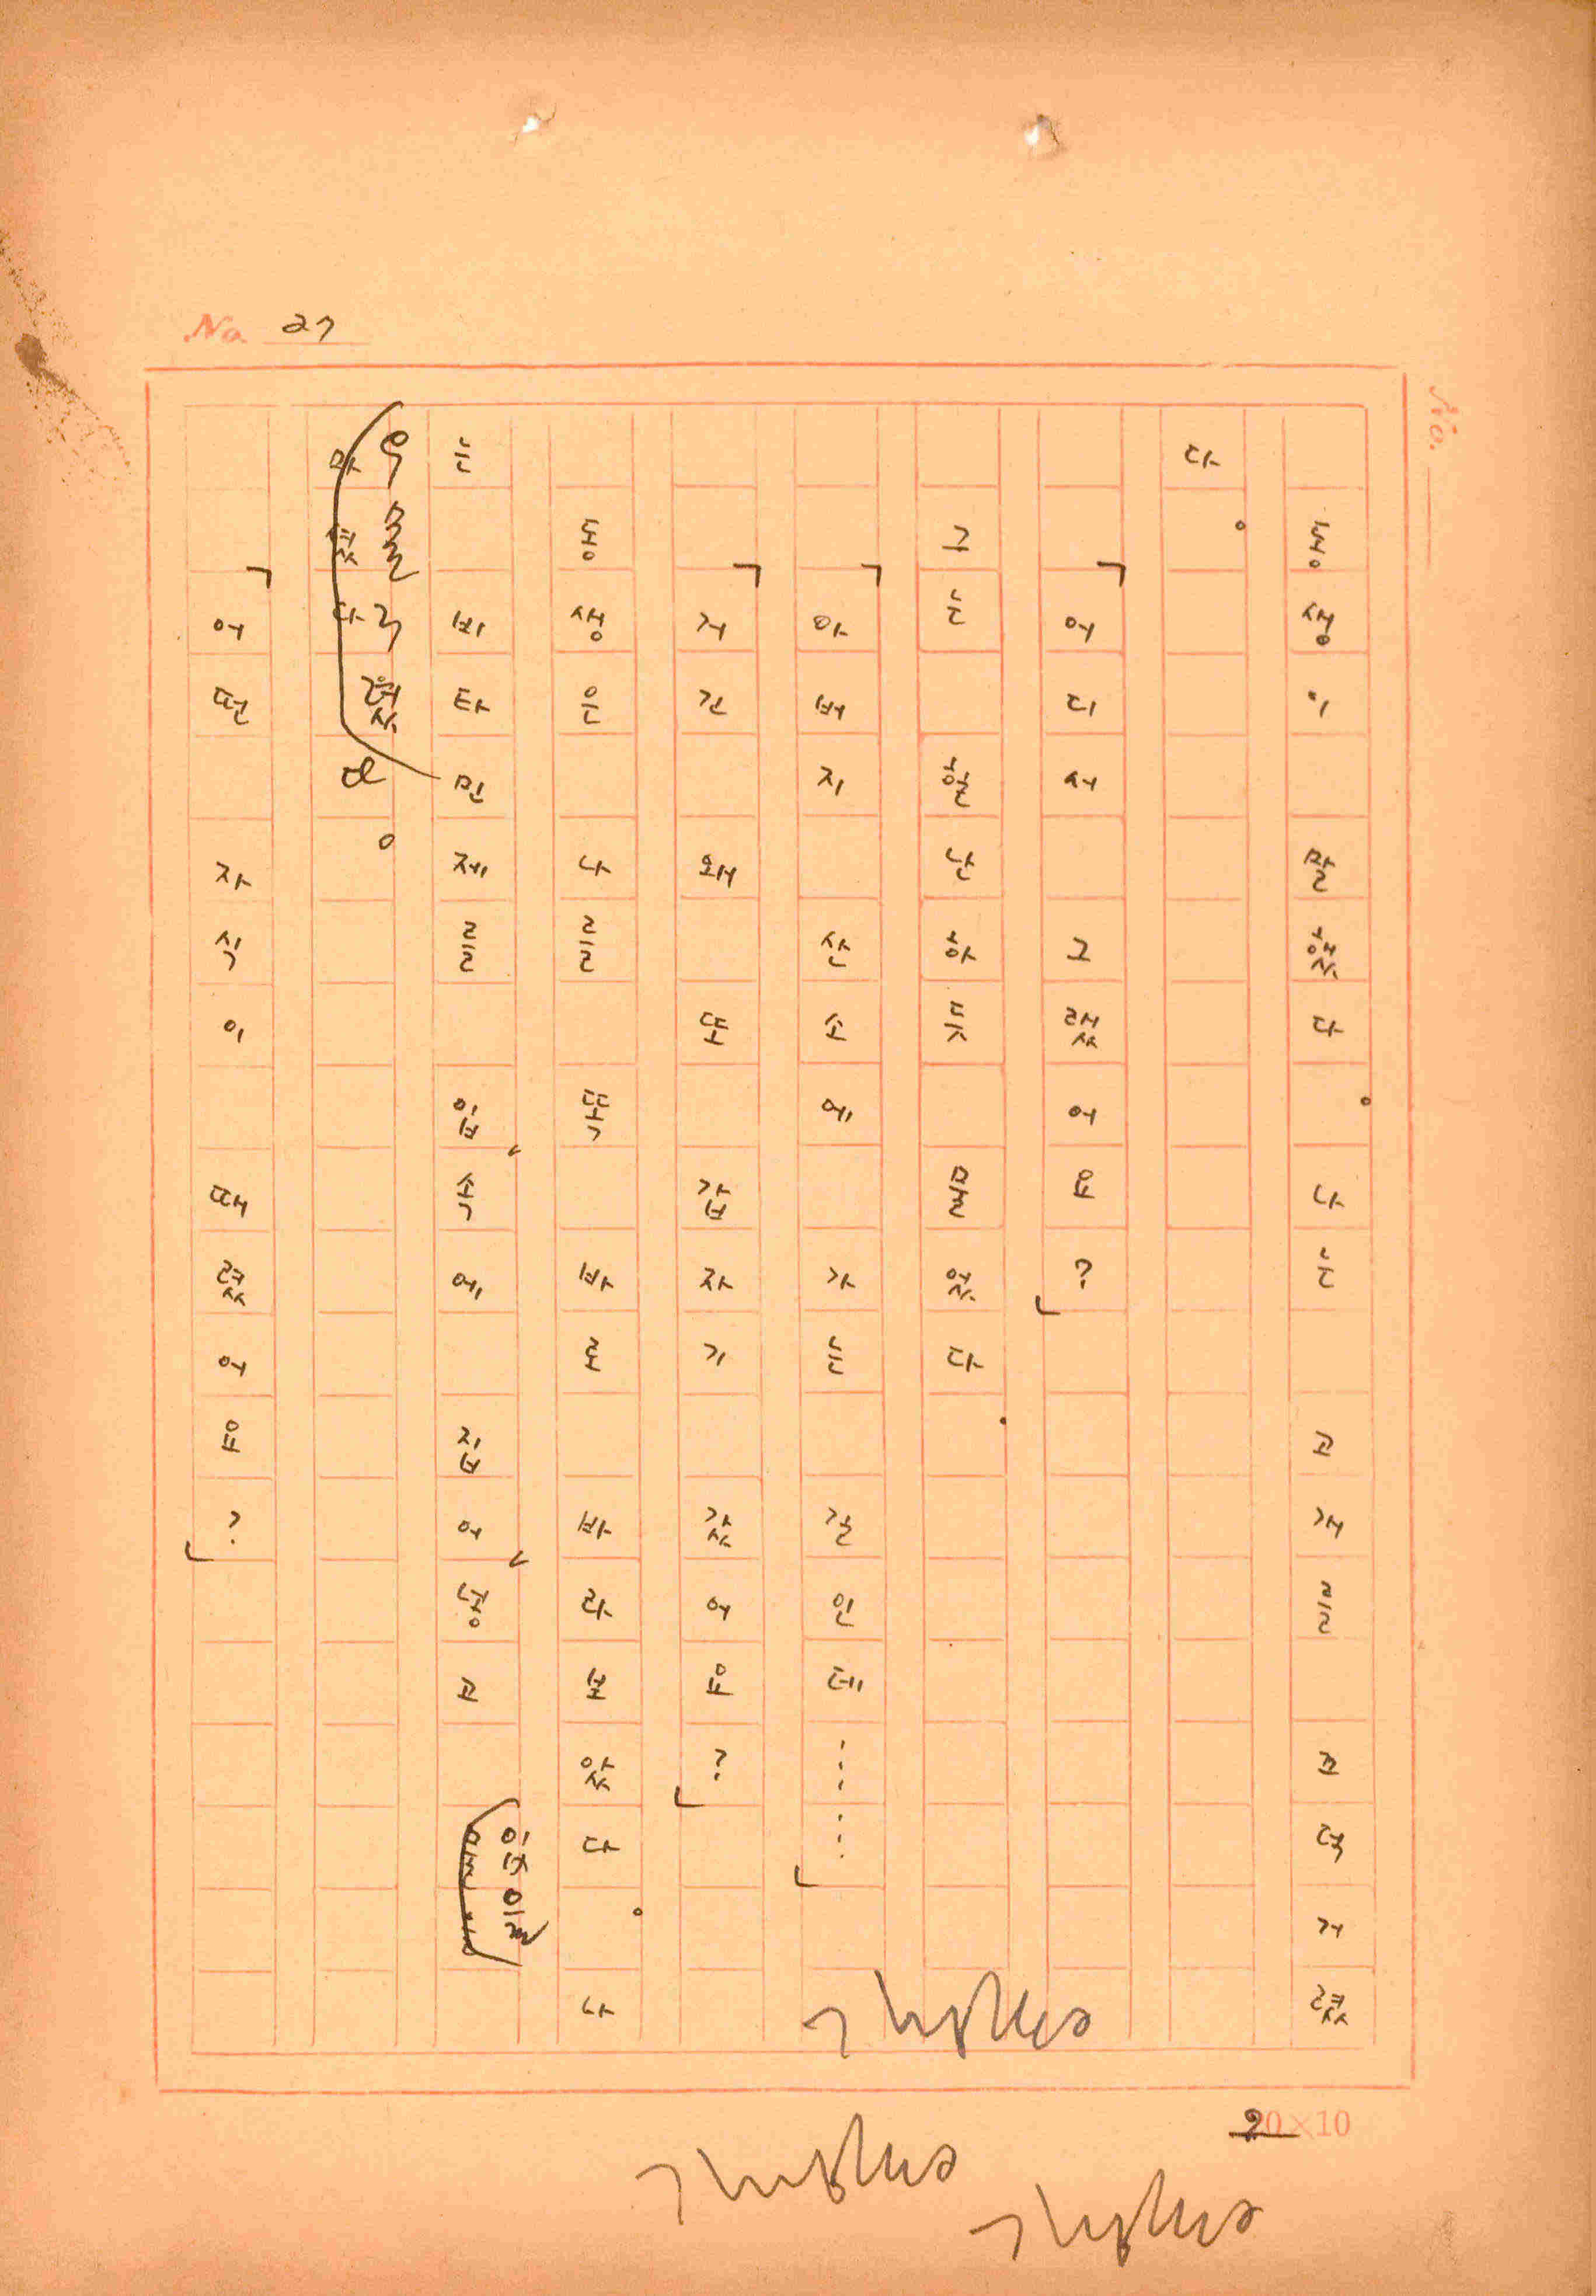 No. 27
No.
동생이 말했다. 나는 고개를 끄덕거렸
다.
「어디서 그랬어요?」
그는 힐난하듯 물었다.
「아버지 산소에 가는 길인데……」
「거긴 왜 또 갑자기 갔어요?」
동생은 나를 똑바로 바라보았다. 나
는 비타민제를 입속에 집어넣고
우물거렸다.
「어떤 자식이 때렸어요?」
20×10